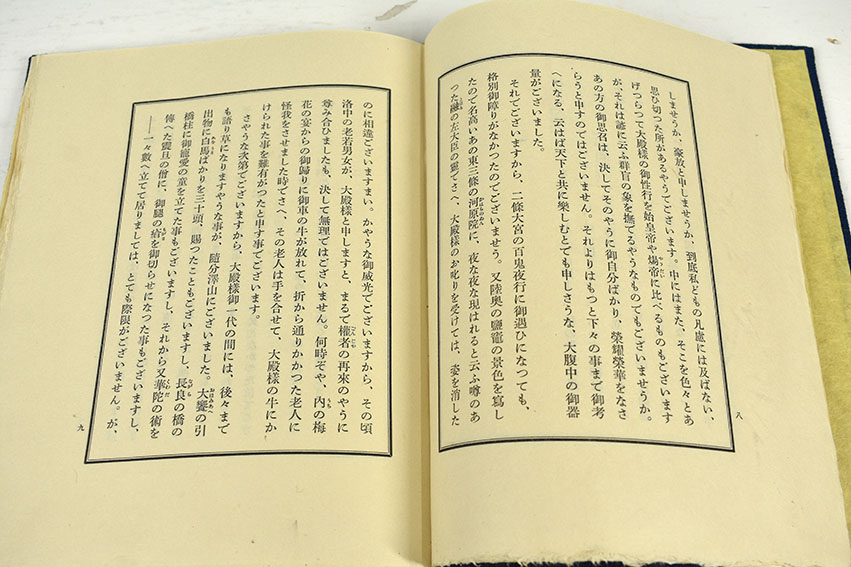 しませうか、豪放と申しませうか、到底私どもの凡慮には及ばない、
思ひ切つた所があるやうでございます。中にはまた、そこを色々とあ
げつらつて大殿様の御性行を始皇帝や煬帝に比べるものもございます
が、それは諺に云ふ群盲の象を撫でるやうなものでもございませうか。
あの方の御思召は、決してそのやうに御自分ばかり、榮耀榮華をなさ
らうと申すのではございません。それよりはもつと下々の事まで御考
へになる、云はば天下と共に樂しむとでも申しさうな、大腹中の御器
量がございました。
それでございますから、二條大宮の百鬼夜行に御遇ひになつても、
格別御障りがなかつたのでございませう。又陸奥の鹽竈の景色を寫し
たので名高いあの東三條の河原院に、夜な夜な現はれると云ふ噂のあ
つた融の左大臣の靈でさへ、大殿様のお叱りを受けては、姿を消した
八
のに相違ございますまい。かやうな御威光でございますから、その頃
洛中の老若男女が、大殿様と申しますと、まるで權者の再來のやうに
尊み合ひましたも、決して無理ではございません。何時ぞや、内の梅
花の宴からの御歸りに御車の牛が放れて、折から通りかかつた老人に
怪我をさせました時でさへ、その老人は手を合せて、大殿様の牛にか
けられた事を難有がつたと申す事でございます。
さやうな次第でございますから、大殿様御一代の間には、後々まで
も語り草になりますやうな事が、隨分澤山にございました。大饗の引
出物に白馬ばかりを三十頭、賜つたこともございますし、長良の橋の
橋柱に御寵愛の童を立てた事もございますし、それから又華陀の術を
傳へた震旦の僧に、御腿の瘡を御切らせになつた事もございますし、
――一々數へ立てて居りましては、とても際限がございません。が、
九